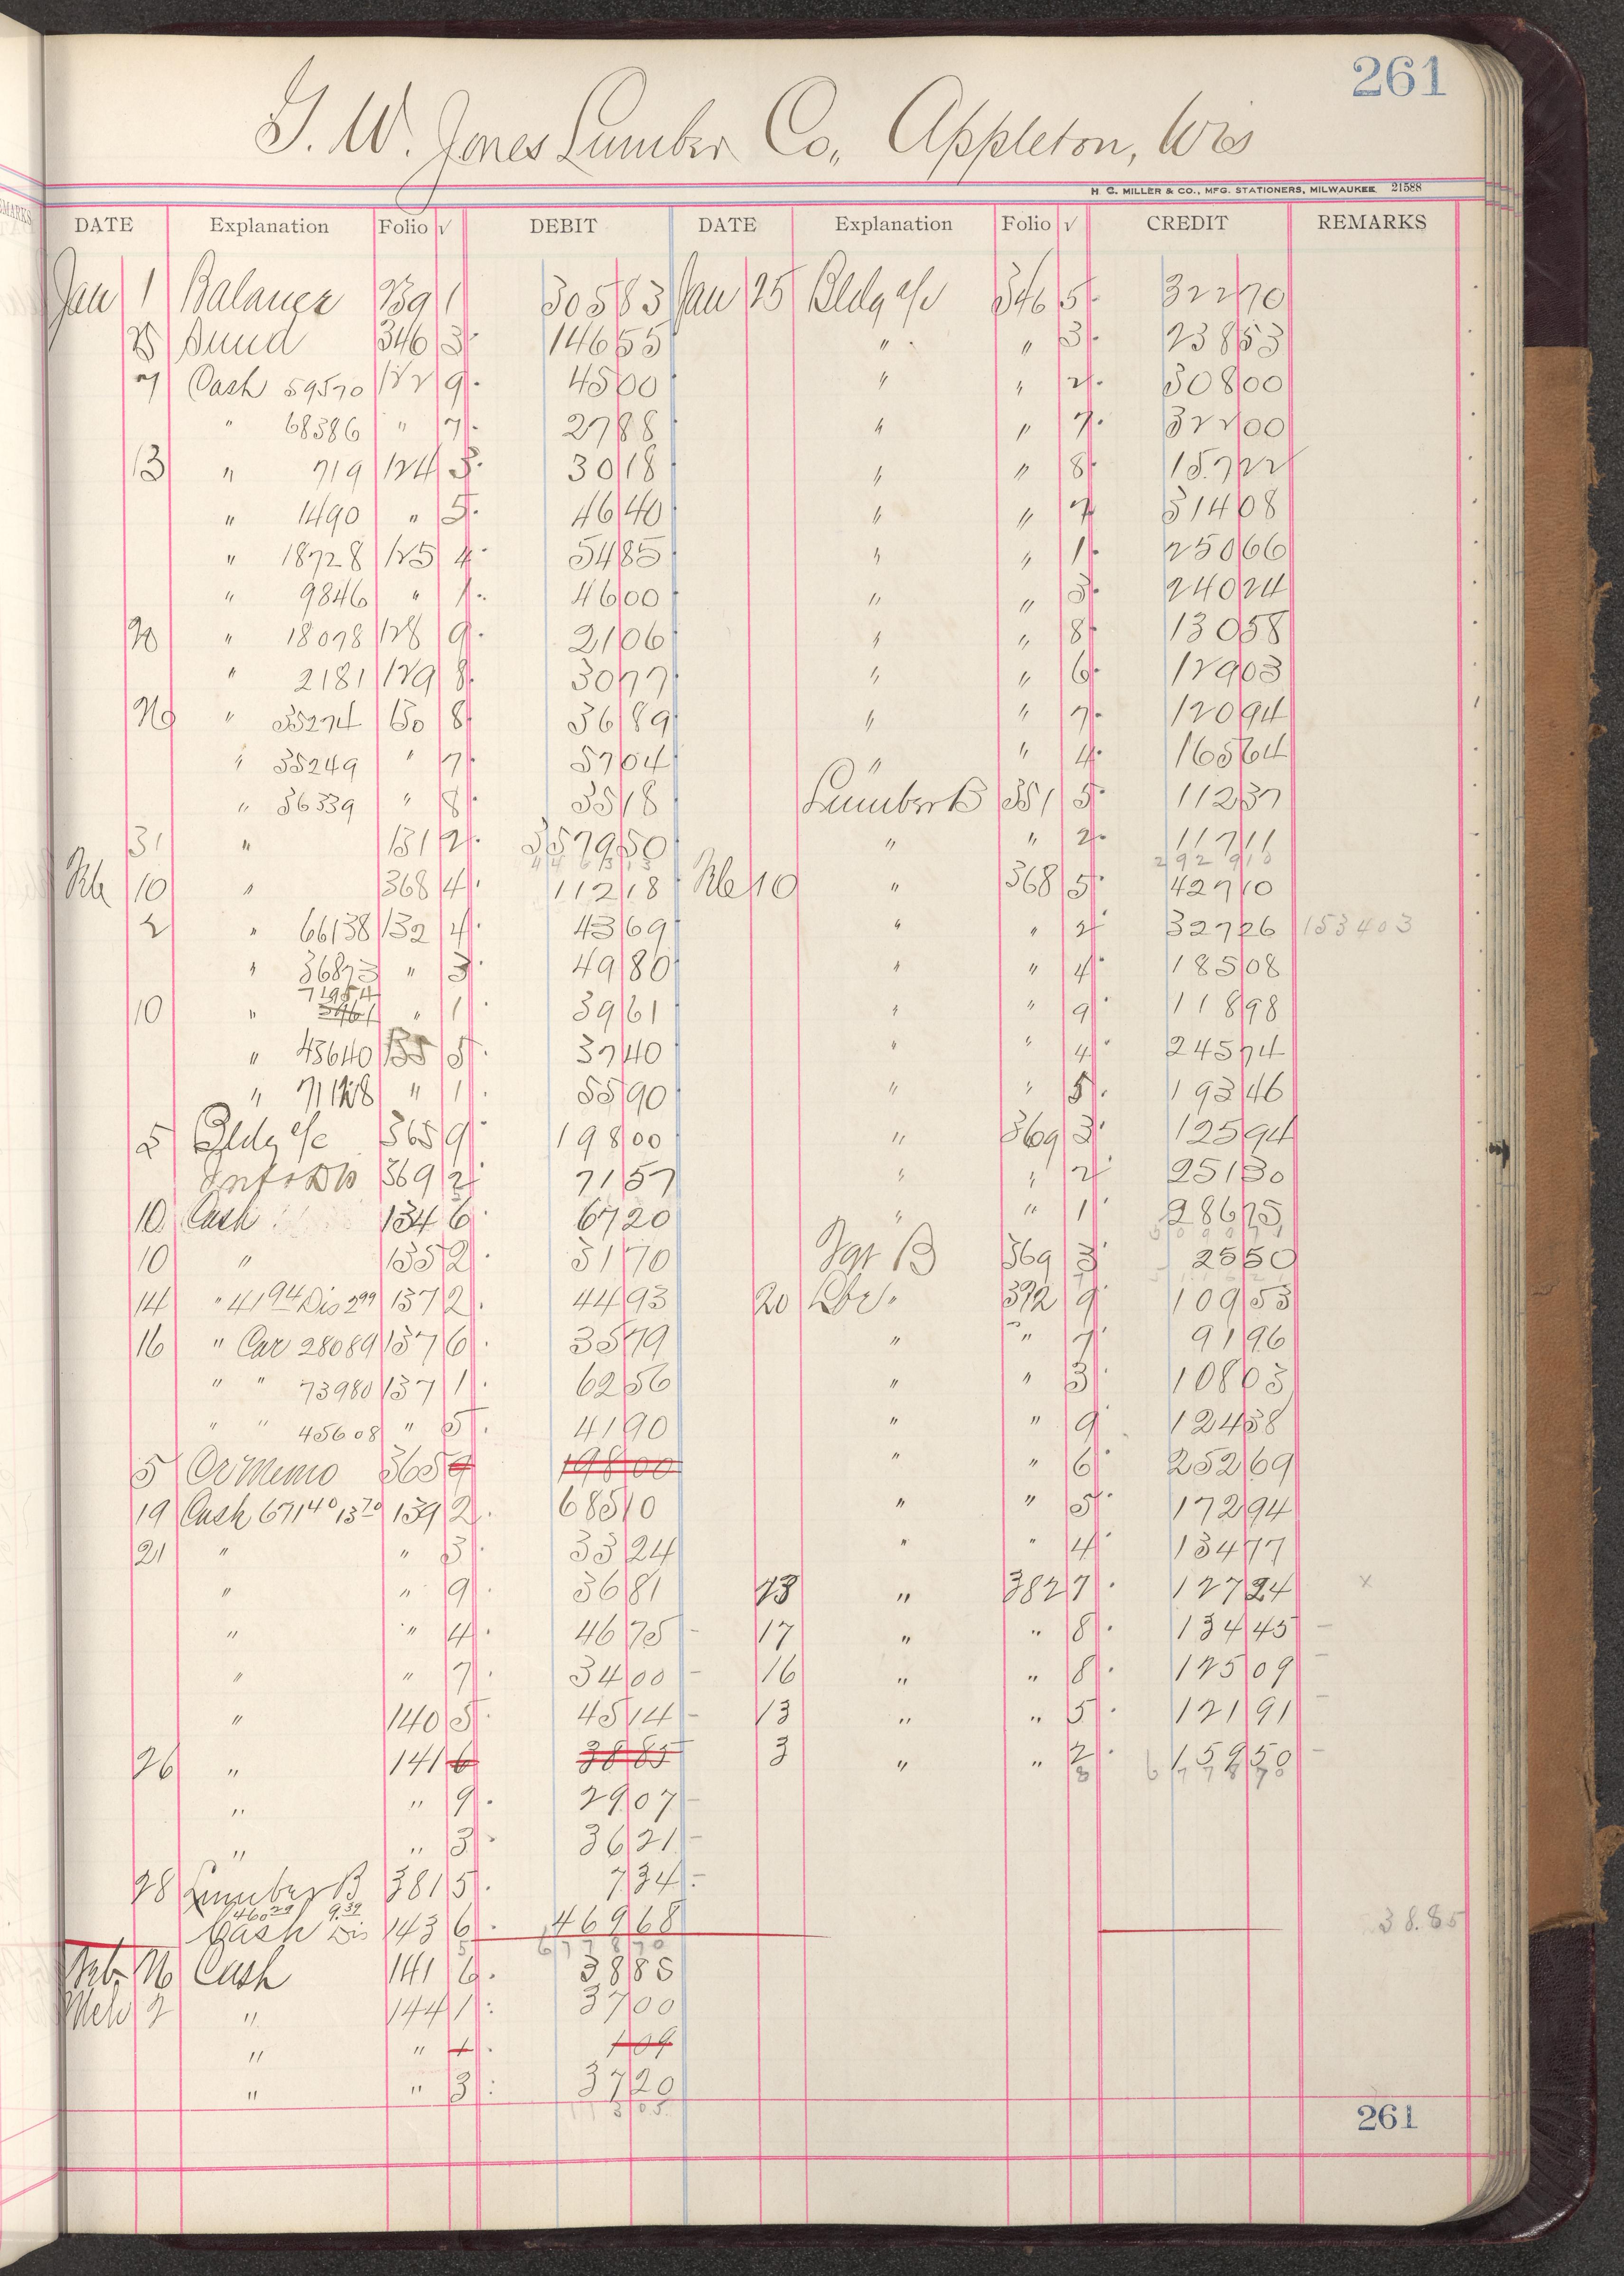 261
G. W. Jones Lumber Co, Appleton, Wis
H. C. MILLER & CO., MFG. STATIONERS, MILWAUKEE 21588
DATE Explanation Folio √ DEBIT DATE Explanation Folio √ CREDIT REMARKS
Jan 1 Balance 239 1 305 83 Jan 25 Bldg a/c 346 5 322 70
25 Sund 346 3 146 55 " " 3 238 53
7 Cash 59570 122 9 45 00 " " 2 308 00
" 68386 " 7 27 88 " " 7 322 00
13 " 719 124 3 30 18 " " 8 157 22
" 1490 " 5 46 40 " " 7 314 08
" 18728 125 4 54 85 " " 1 250 66
" 9846 " 1 46 00 " " 3 240 24
20 " 18098 128 9 21 06 " " 8 130 58
" 2181 129 8 30 77 " " 6 129 03
29 " 35274 130 8 36 89 " " 7 120 94
" 35249 " 7 57 04 " " 4 165 64
" 36339 " 8 35 18 Lumber B 351 5 112 37
31 " 131 2 3579 50 " " 2 117 11
Feb 10 " 368 4 112 18 Feb 10 " 368 5 427 10
2 " 66138 132 4 43 69 " " 2 327 26 153403
" 36873 " 3 49 80 " " 4 185 08
71954
10 " 3961 " 1 39 61 " " 9 118 98
" 43640 135 5 37 40 " " 4 245 74
" 71128 " 1 55 90 " " 5 193 46
5 Bldg a/c 365 9 198 00 " 369 3 125 94
369 2 71 57 " " 2 251 30
10 Cash 134 6 67 20 " " 1 286 75
10 " 135 2 51 70 B 369 3 25 50
14 " 41 94 Dis 2 99 137 2 44 93 20 Lbr " 372 9 109 53
16 " Car 28089 137 6 35 79 " " 7 91 96
" " 73980 137 1 62 56 " " 3 108 03
" " 45608 " 5 41 90 " " 9 124 38
5 Cr Memo 365 9 198 00 " " 6 252 69
19 Cash 671 40 13 70 139 2 685 10 " " 5 172 94
21 " " 3 33 24 " " 4 134 77
" " 9 36 81 23 " 382 7 127 24 x
" " 4 46 75 17 " " 8 134 45
" " 7 34 00 16 " " 8 125 09
" 140 5 45 14 13 " " 5 121 91
26 " 141 6 38 85 3 " " 2
" " 9 29 07
" " 3 36 21
28 Lumber B 381 5 7 34
460 29 9.39
Cash Dis 143 6 469 68 38.85
Feb 26 Cash 141 6 38 85
Mch 2 " 144 1 37 00
" " 1 04
" " 3 37 20
261